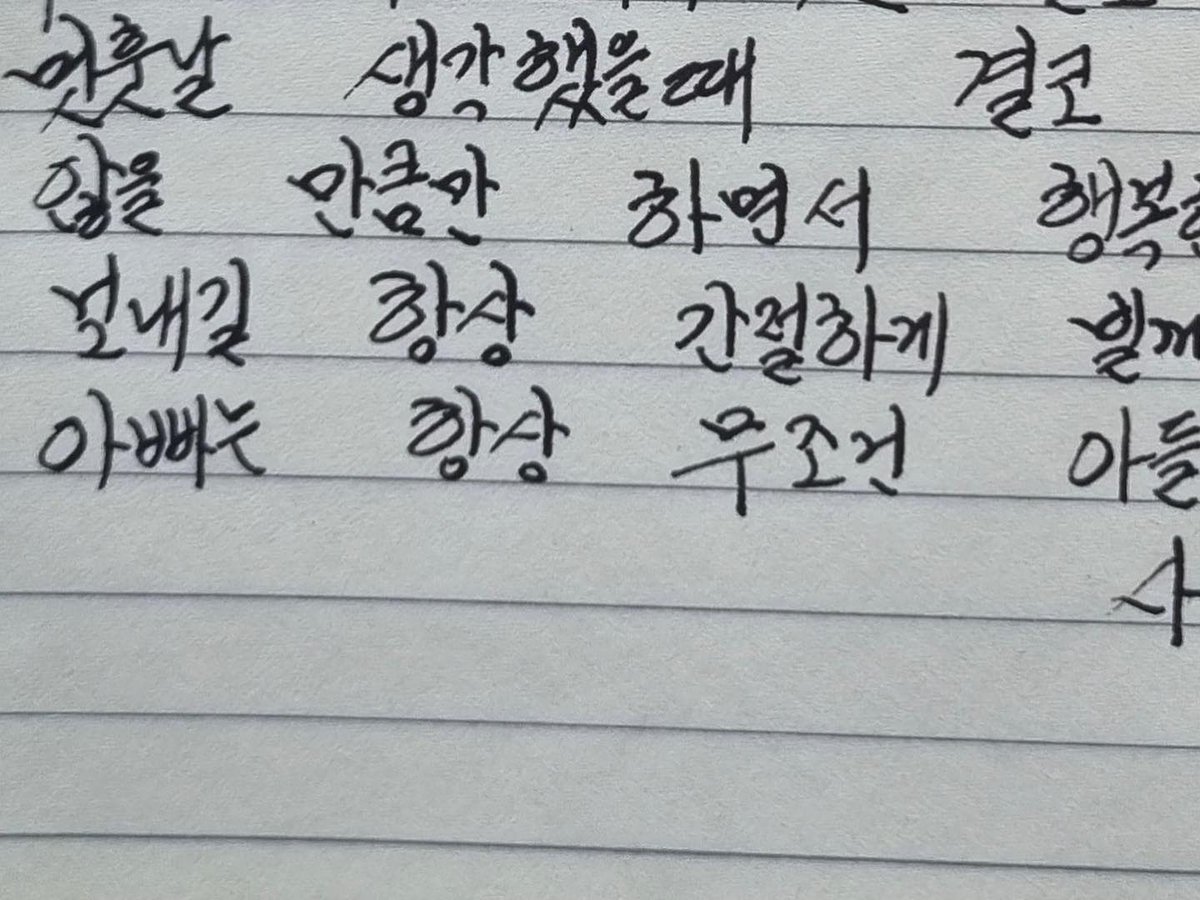 먼훗날 생각했을때 결코
않을 만큼만 하면서 행복한
보내길 항상 간절하게 할께
아빠는 항상 무조건 아들
사